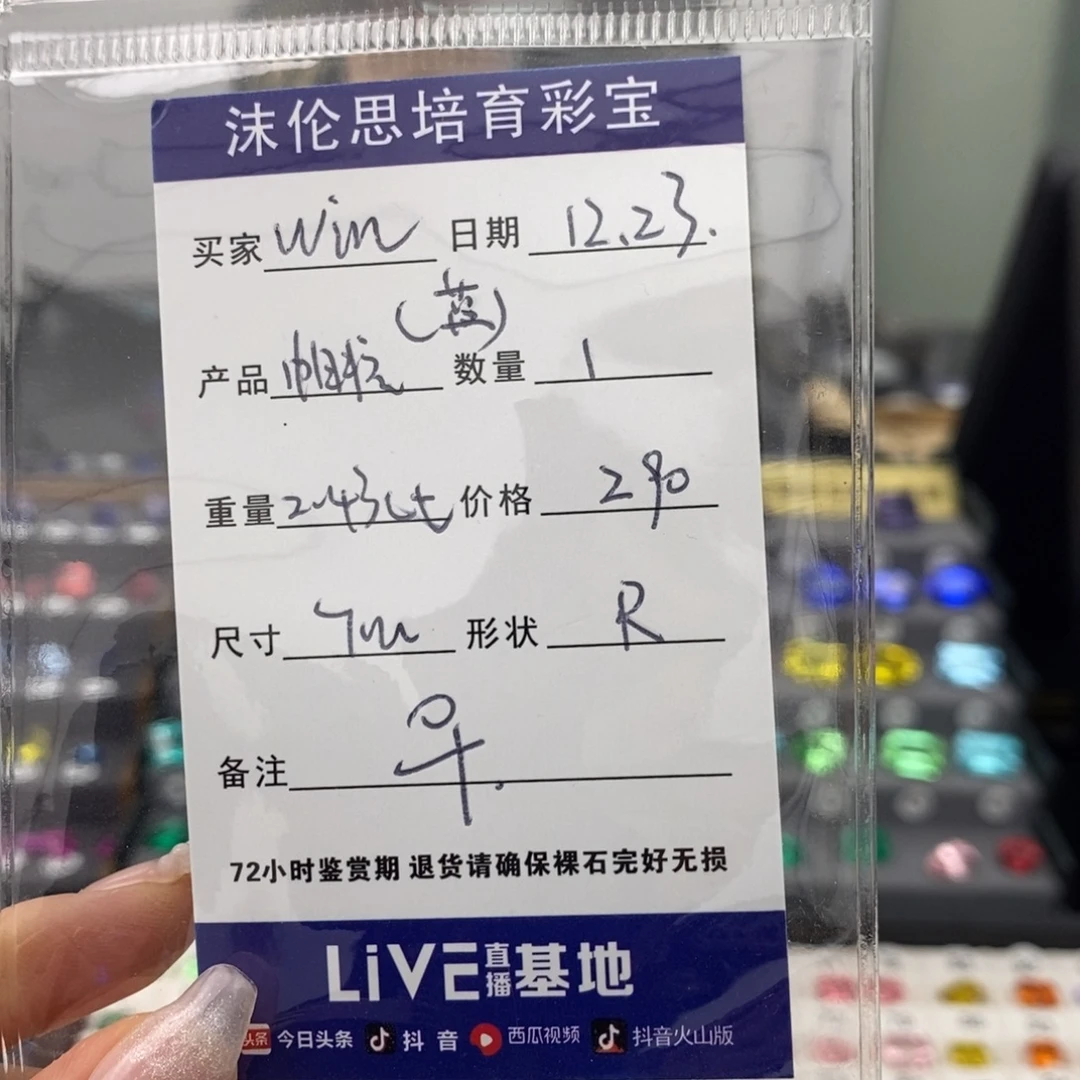 沫伦思培育彩宝
买家 Win 日期 12.23.
(蓝)
产品 帕拉 数量 1
重量 2.43ct 价格 290
尺寸 7m 形状 R
备注 早.
72小时鉴赏期 退货请确保裸石完好无损
LiVE直播基地
头条 今日头条 抖音 西瓜视频 抖音火山版